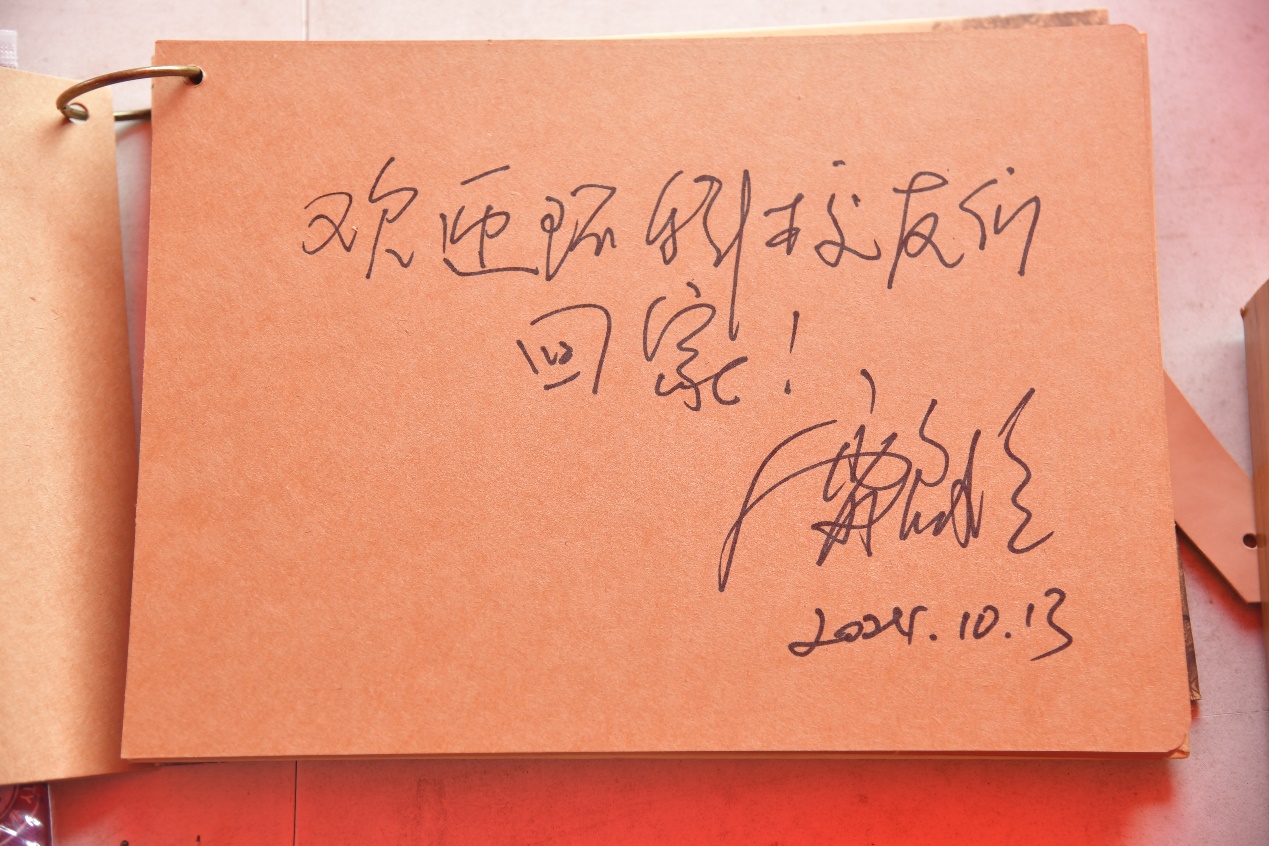 欢迎环科校友们
回家!
2024.10.13